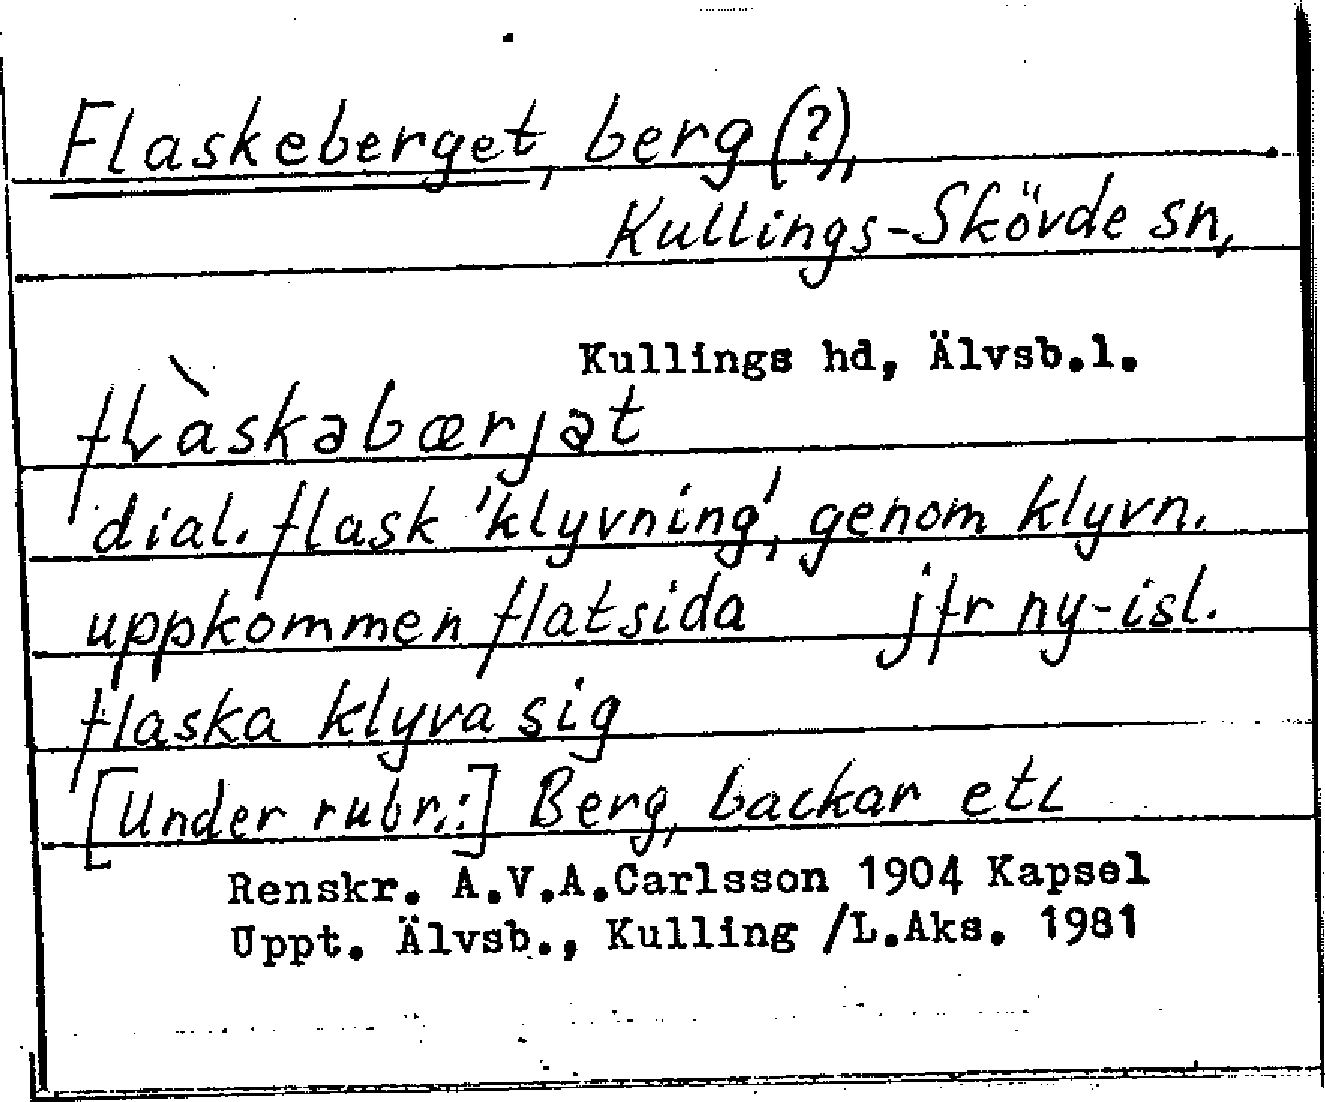 Flaskeberget, berg (?),
Kullings-Skövde sn,
Kullings hd, Älvsb.l.
flàskabærjat
dial. flask 'klyvning', genom klyvn.
uppkommen flatsida jfr ny-isl.
flaska klyva sig
[Under rubr.:] Berg, backar etc
Renskr. A.V.A.Carlsson 1904 Kapsel
Uppt. Älvsb., Kulling /L.Aks. 1981